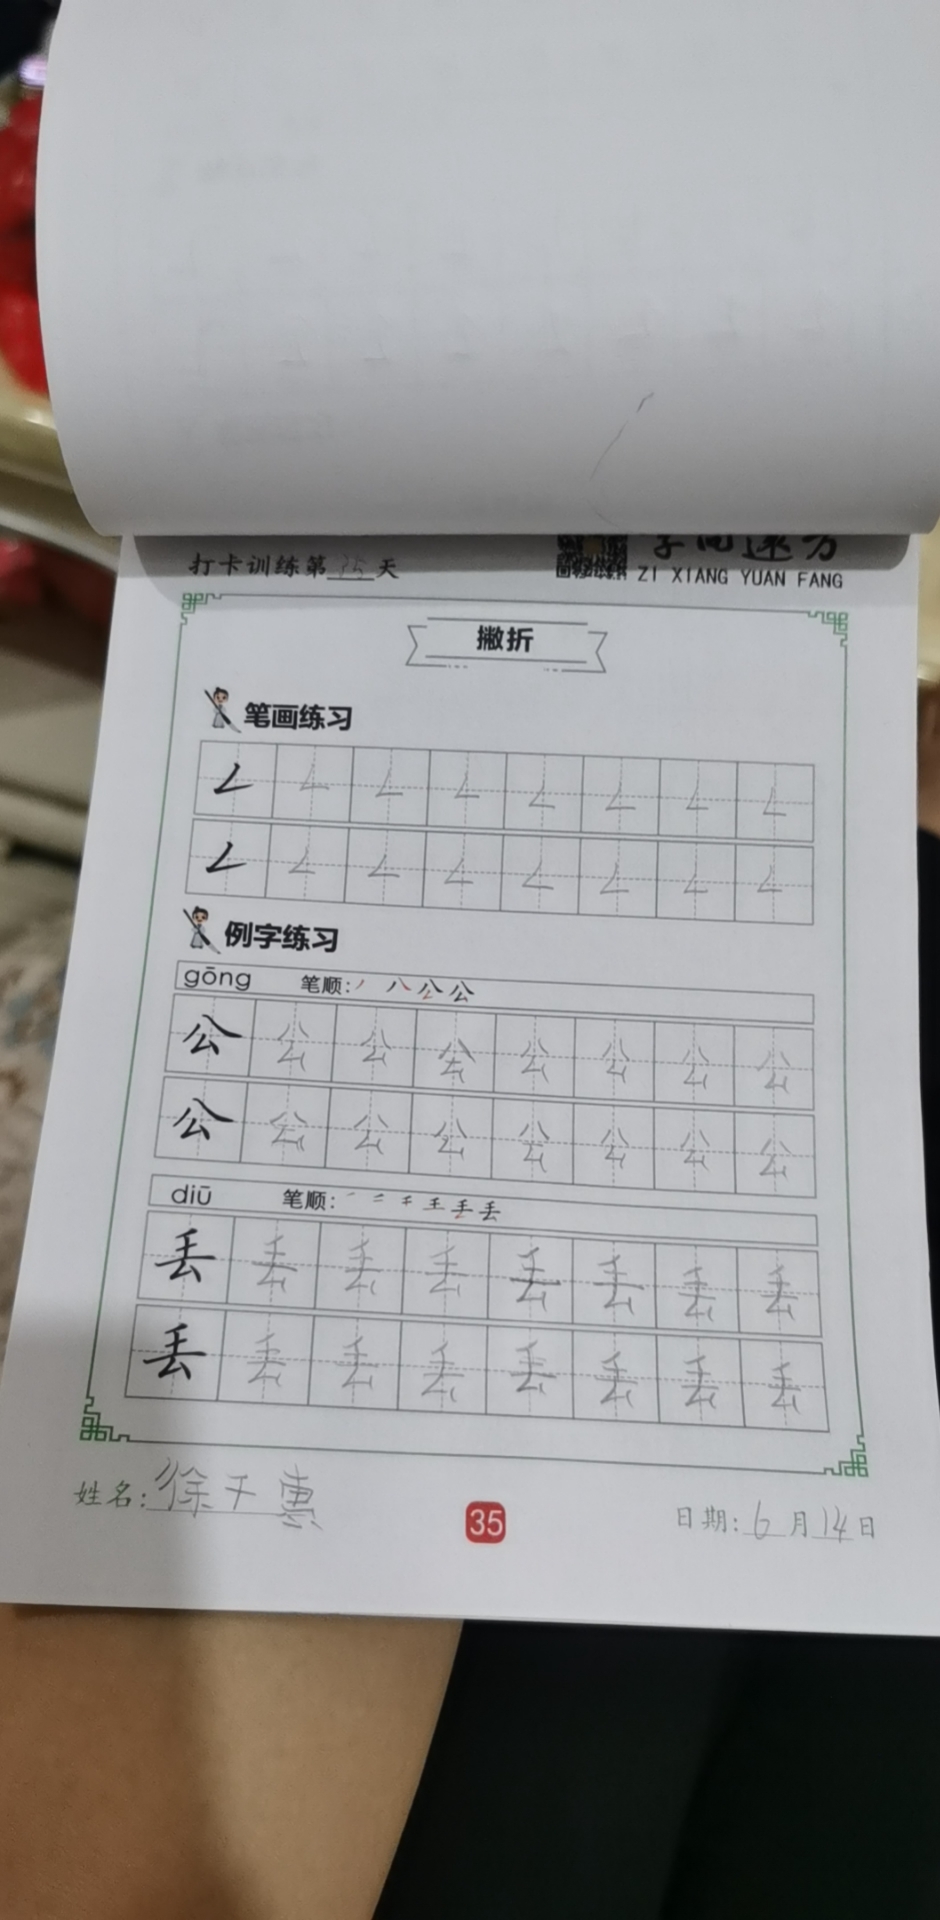 打卡训练第35天
字向远方
ZI XIANG YUAN FANG
撇折
笔画练习
例字练习
gōng 笔顺: 丿 八 公 公
公 公 公 公 公 公 公 公
公 公 公 公 公 公 公 公
diū 笔顺: 一 二 千 王 丢 丢
丢 丢 丢 丢 丢 丢 丢 丢
丢 丢 丢 丢 丢 丢 丢 丢
姓名: 徐千惠
35
日期: 6月14日